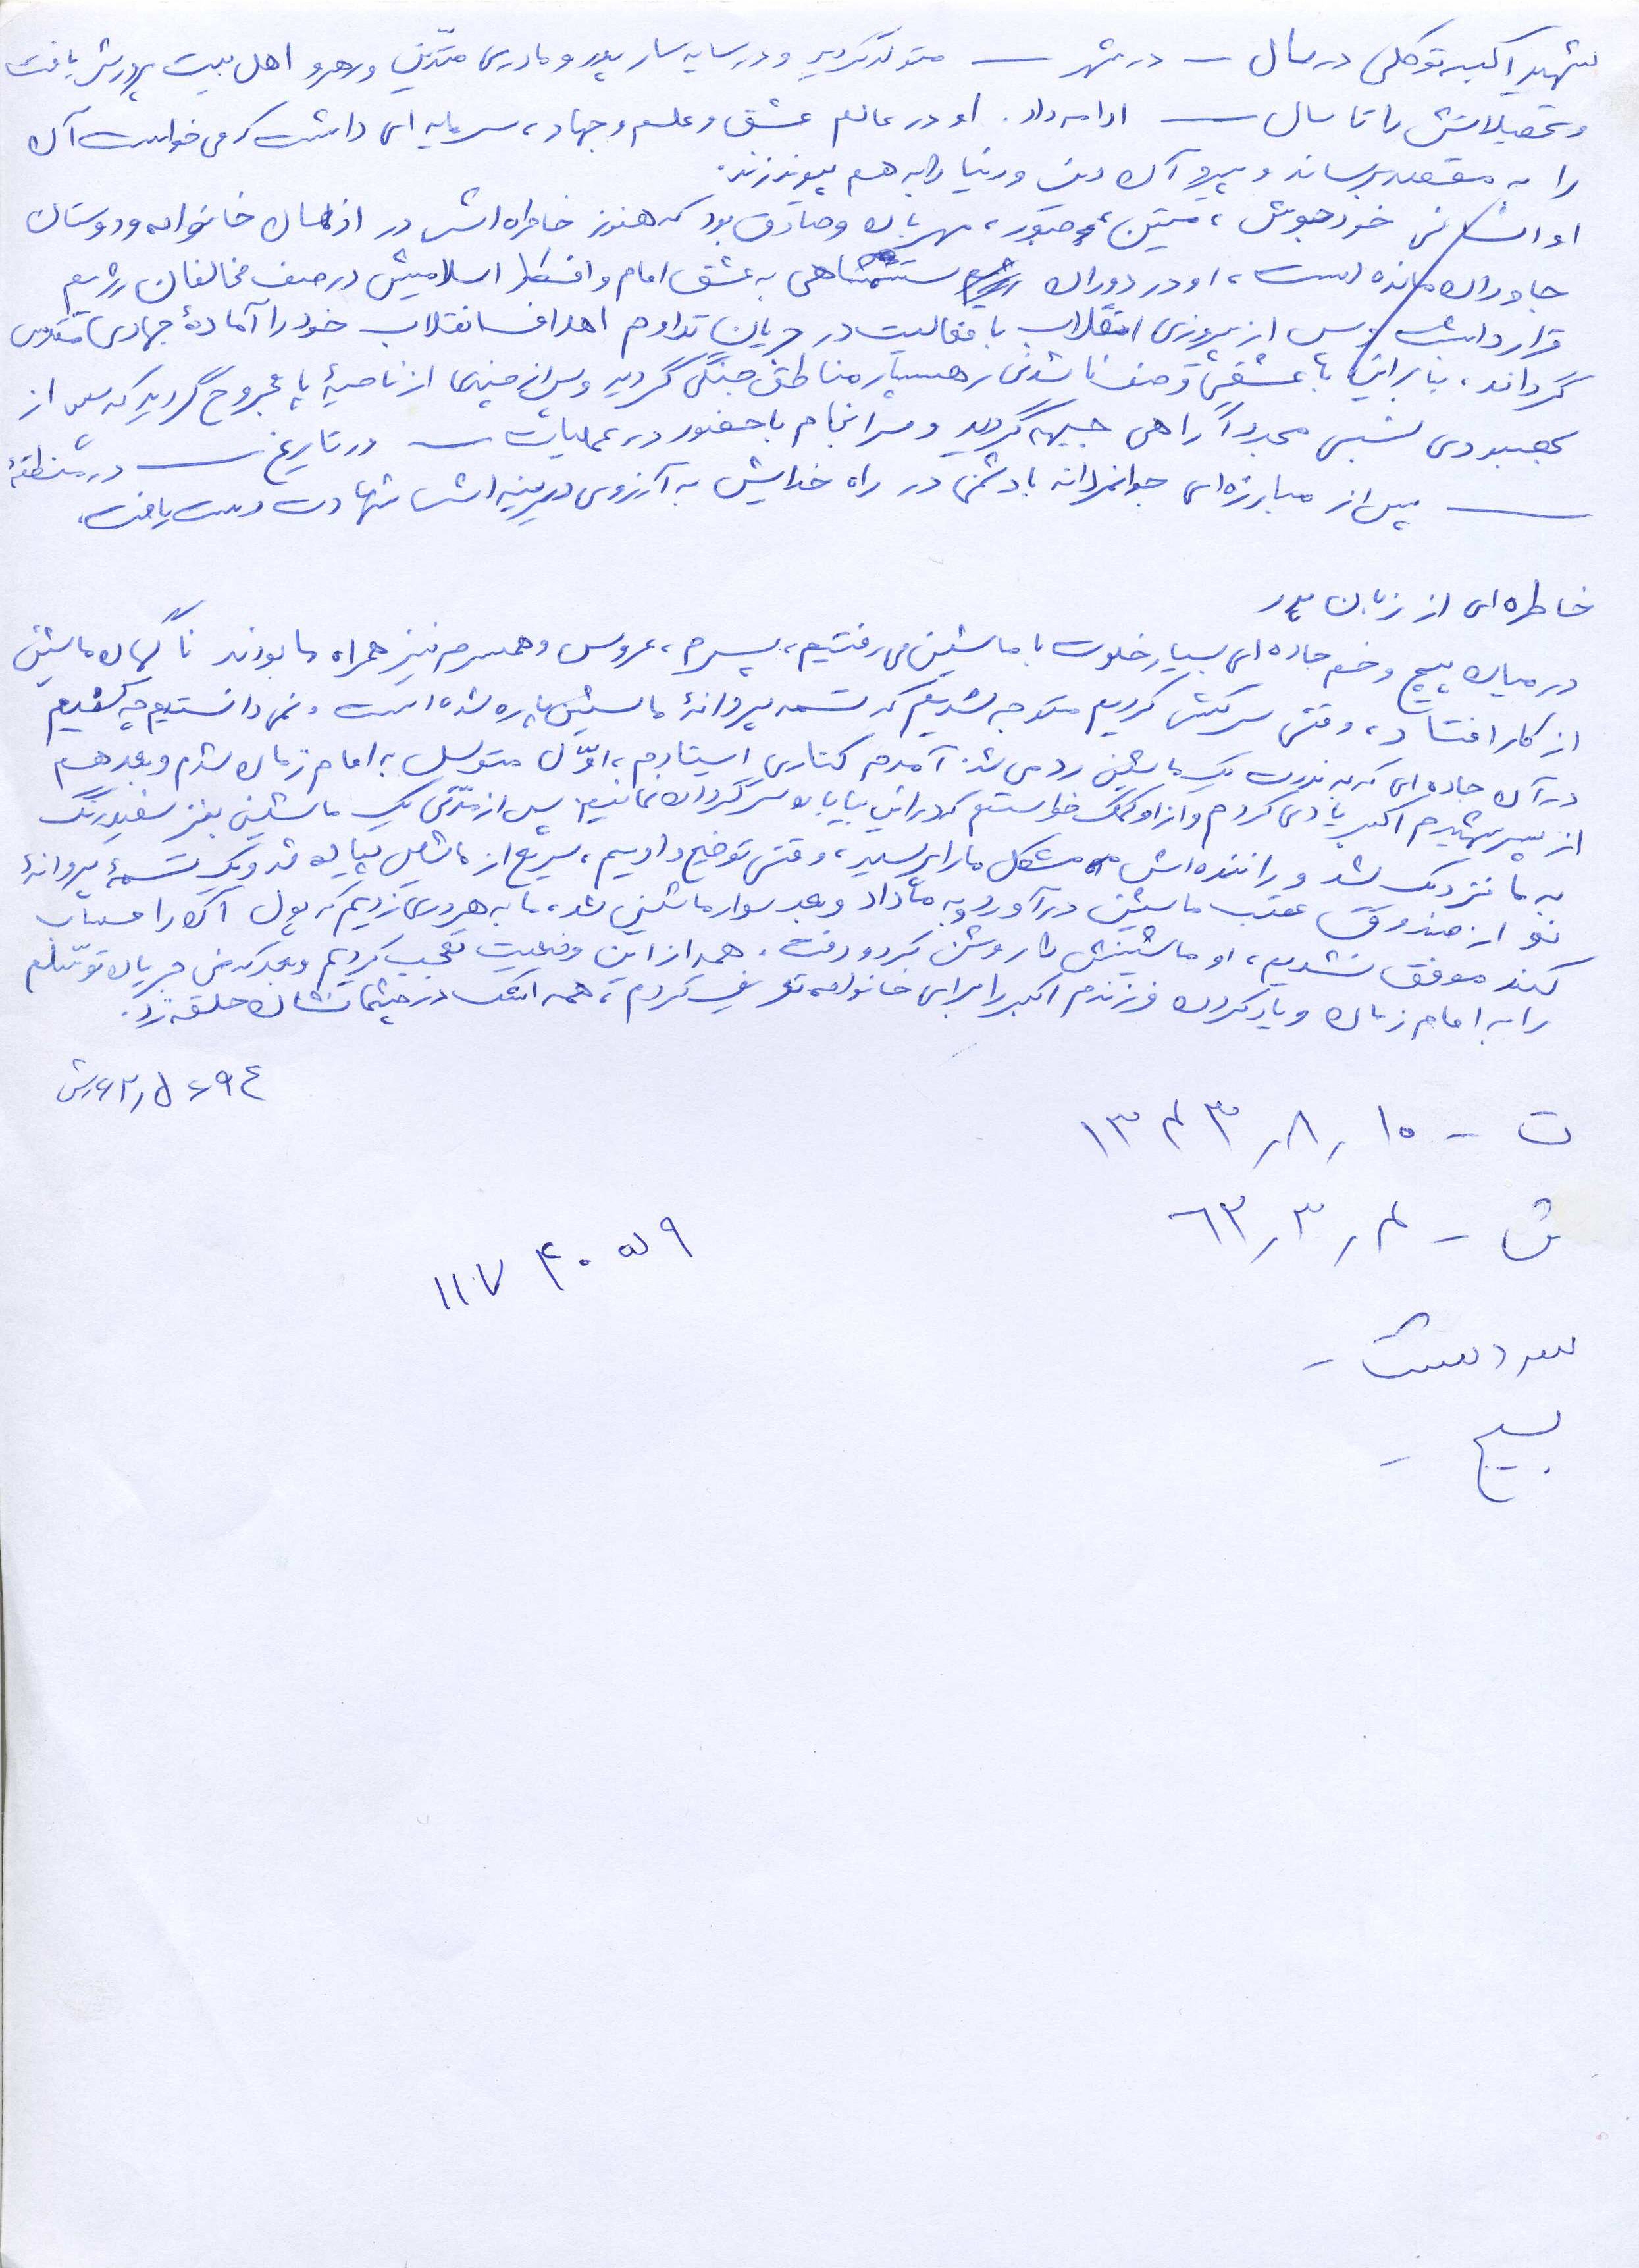 شهید اکبر توکلی در سال ــ در شهر ــ متولد گردید و در سایه سار پدر و مادری متدیّن و رهرو اهل بیت پرورش یافت
و تحصیلاتش را تا سال ــ ادامه داد. او در عالم عشق و علم و جهاد، سرمایه ای داشت که می خواست آن
را به مقصد برساند و پیرو آن دین و دنیا را به هم پیوند زند.
او انسانی خودجوش، متین، صبور، مهربان و صادق بود که هنوز خاطره اش در اذهان خانواده و دوستان
جاودان مانده است، او در دوران ستمشاهی به عشق امام و اسلامیش در صف مخالفان رژیم
قرار داشت و پس از پیروزی انقلاب با فعالیت در جریان تداوم اهداف انقلاب خود را آمادهٔ جهادی مقدس
گرداند، بنابراین با عشقی وصف ناشدنی رهسپار مناطق جنگی گردید و پس از چندی از ناحیهٔ پا مجروح گردید که پس از
بهبودی نسبی مجدداً راهی جبهه گردید و سرانجام با حضور در عملیات ــ در تاریخ ــ در منطقهٔ
ــ پس از مبارزه ای جوانمردانه با دشمن در راه خدایش به آرزوی دیرینه اش شهادت دست یافت.
خاطره ای از زبان پدر
در میان پیچ و خم جاده ای بسیار خلوت با ماشین می رفتیم، پسرم، عروس و همسرم نیز همراه ما بودند ناگهان ماشین
از کار افتاد، وقتی سرکشی کردیم متوجه شدیم که تسمه پروانهٔ ماشین پاره شده است. نمی دانستیم چه کنیم
در آن جاده ای که به ندرت یک ماشین رد می شد. آمدم کناری ایستادم، اوّل متوسل به امام زمان شدم و بعد هم
از پسر شهیدم اکبر یادی کردم و از او کمک خواستم که در این بیابان سرگردان نمانیم. پس از مدّتی یک ماشین بنز سفیدرنگ
به ما نزدیک شد و راننده اش مشکل ما را پرسید، وقتی توضیح دادیم، سریع از ماشین پیاده شد و یک تسمهٔ پروانهٔ
نو از صندوق عقب ماشین درآورد و به ما داد و بعد سوار ماشین شد، ما به هر دری زدیم که پول آن را حساب
کند موفق نشدیم، او ماشینش را روشن کرد و رفت. همه از این وضعیت تعجب کردیم و بعد که من جریان توسّلم
را به امام زمان و یاد کردن فرزندم اکبر را برای خانواده تعریف کردم، همه اشک در چشمانشان حلقه زد.
ت - ۱۰ ر ۸ ر ۱۳۴۳
ش - ۴ ر ۳ ر ۶۳
۱۱۷ ۴۰۵۹
سردشت -
بسیج -